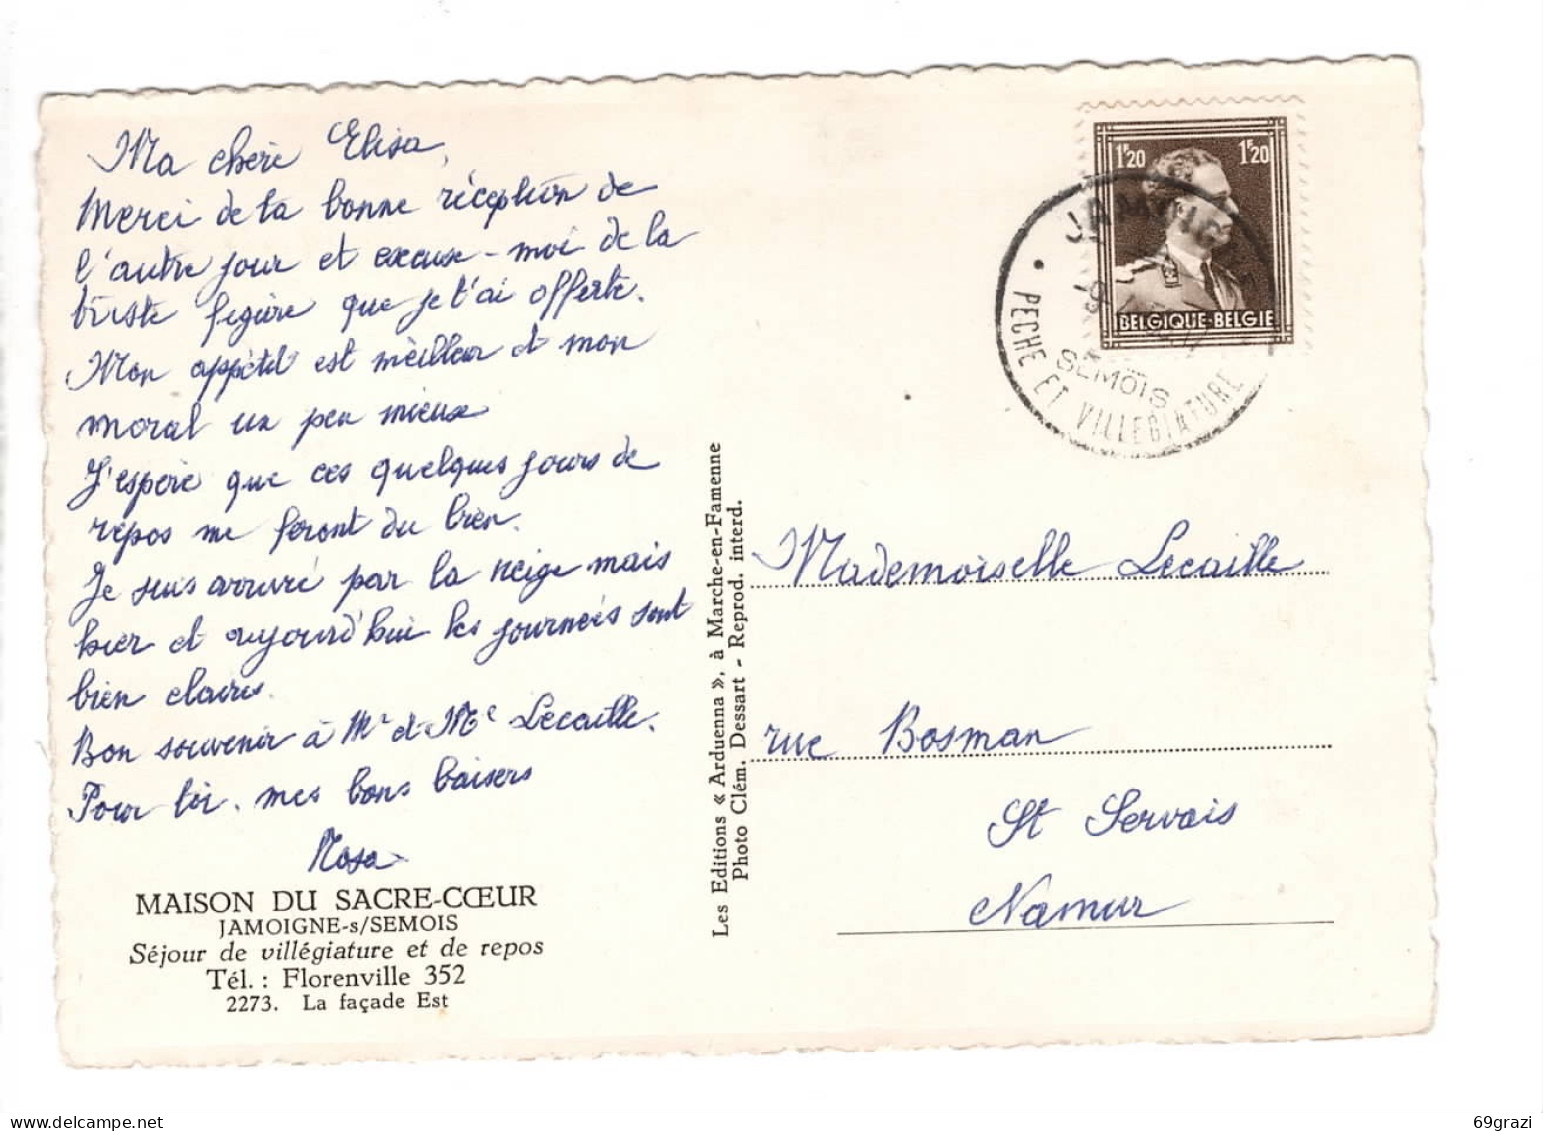 Ma chère Elisa,
Merci de la bonne réception de
l'autre jour et excuse-moi de la
triste figure que je t'ai offerte.
Mon appétit est meilleur et mon
moral un peu mieux
J'espère que ces quelques jours de
repos me feront du bien.
Je suis arrivé par la neige mais
hier et aujourd'hui les journées sont
bien claires.
Bon souvenir à Mr et Me Lecaille.
Pour toi, mes bons baisers
Rosa
MAISON DU SACRE-CŒUR
JAMOIGNE-s/SEMOIS
Séjour de villégiature et de repos
Tél. : Florenville 352
2273. La façade Est
Les Editions « Arduenna », à Marche-en-Famenne
Photo Clém. Dessart - Reprod. interd.
1F20 1F20
BELGIQUE-BELGIE
SEMOIS
PECHE ET VILLEGIATURE
Mademoiselle Lecaille
rue Bosman
St Servais
Namur
69grazi